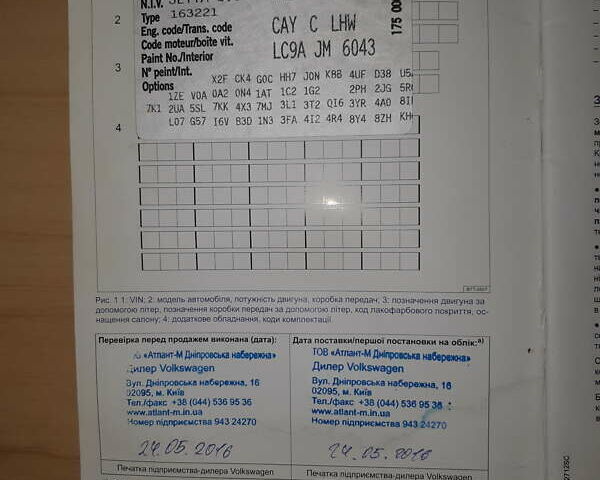 N.I.V.
Type 163221
Eng. code/Trans. code CAY C LHW
Code moteur/boîte vit.
Paint No./Interior LC9A JM 6043
N° peint/Int.
Options
X2F CK4 G0C HH7 J0N K8B 4UF D38
1ZE V0A 0A2 0N4 1AT 1C2 1G2 2PH 2JG
7K1 2UA 5SL 7KK 4X3 7MJ 3L1 3T2 QI6 3YR 4A0
L07 G57 I6V B3D 1N3 3FA 4I2 4R4 8Y4 8ZH
175 00
2
3
4
Рис. 1 1: VIN; 2: модель автомобіля, потужність двигуна, коробка передач; 3: позначення двигуна за
допомогою літер, позначення коробки передач за допомогою літер, код лакофарбового покриття, ос-
нащення салону; 4: додаткове обладнання, коди комплектації.
Перевірка перед продажем виконана (дата):
«Атлант-М Дніпровська набережна»
Дилер Volkswagen
Вул. Дніпровська набережна, 16
02095, м. Київ
Тел./факс +38 (044) 536 95 36
www.atlant-m.in.ua
Номер підприємства 943 24270
24.05.2016
Печатка підприємства-дилера Volkswagen
Дата поставки/першої постановки на облік:a)
ТОВ «Атлант-М Дніпровська набережна»
Дилер Volkswagen
Вул. Дніпровська набережна, 16
02095, м. Київ
Тел./факс +38 (044) 536 95 36
www.atlant-m.in.ua
Номер підприємства 943 24270
24.05.2016
Печатка підприємства-дилера Volkswagen